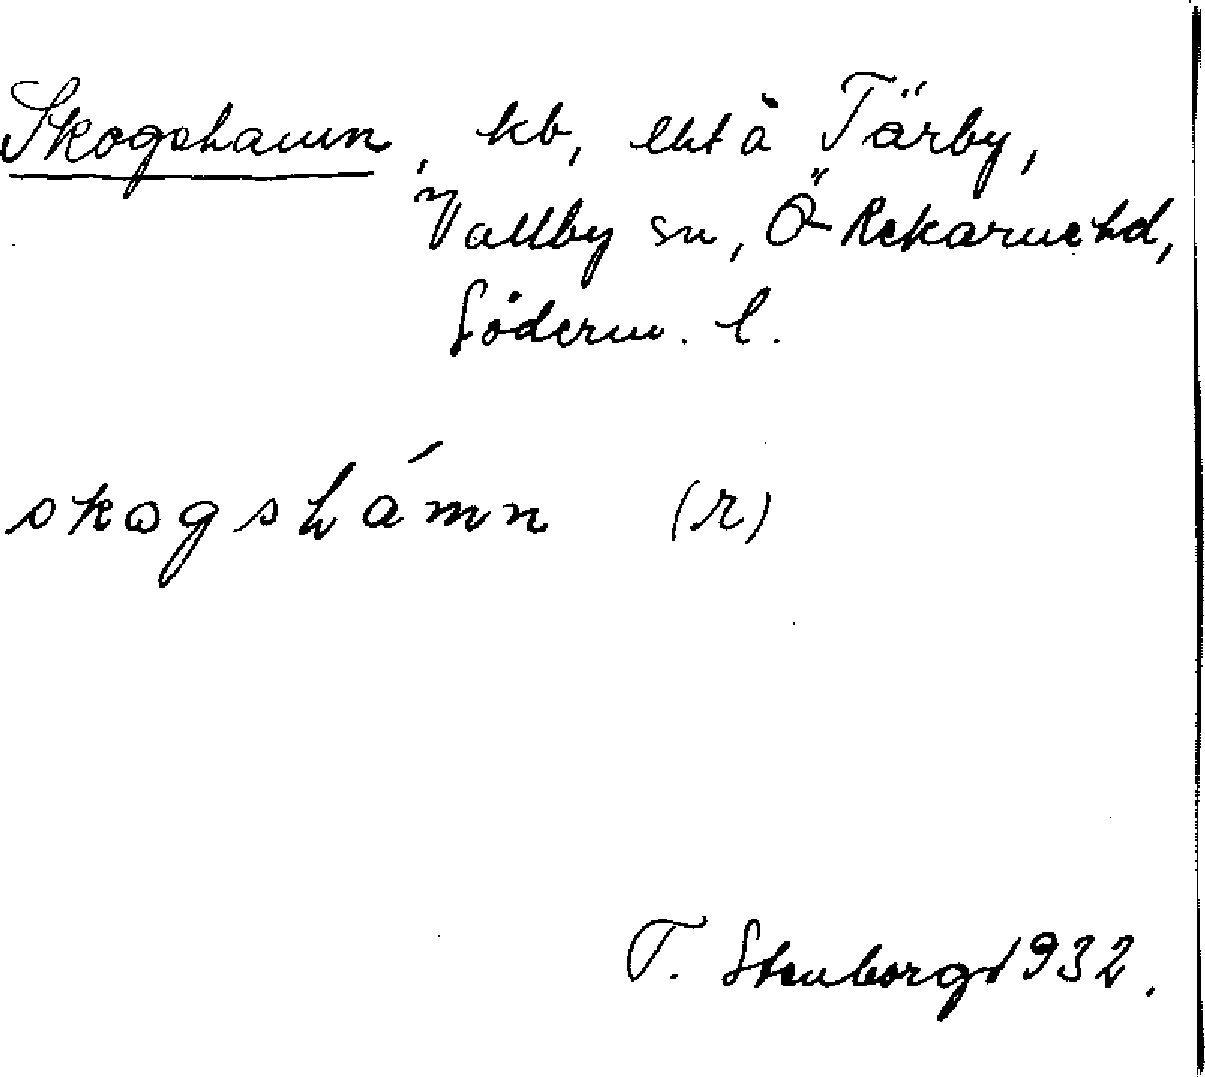 Skogshamn, kb, lht å Tärby,
Vallby sn, Ö-Rekarne hd,
Söderm. l.
skogshámn (r)
T. Stenborg 1932.